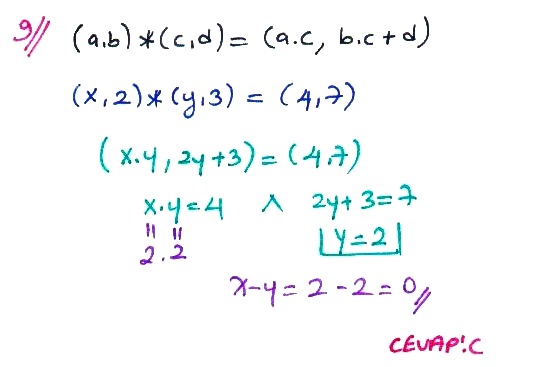 9// (a,b)*(c,d) = (a.c, b.c+d)
(x,2)*(y,3) = (4,7)
(x.y, 2y+3) = (4,7)
x.y=4 ∧ 2y+3=7
" "
2.2 y=2
x-y=2-2=0//
CEVAP:C